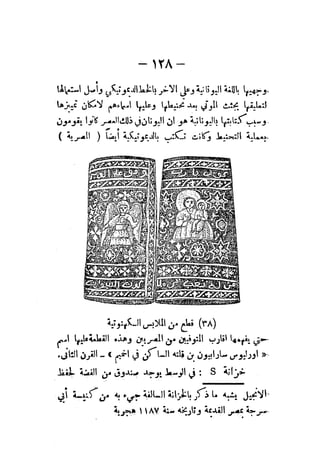 — ١٢٨ —
وجهيها باللغة اليونانية وعلى الآخر بالخط الديموتيكى وأصل استعمالها
لتعليقها بجثث الموتى بعد تحنيطها وعليها اسماءهم لامكان تمييزها
وسبب كتابتها باليونانية هو ان اليونان فى ذلك العصر كانوا يقومون
بعملية التحنيط وكانت تكتب بالديموتيكية أيضاً ( المصرية )
(٣٨) قطع من الملابس الكهنوتية
حتى يفهمها اقارب المتوفين من المصريين وهذه القطعة عليها اسم
« اورليوس سارابيون بن قلته الساكن فى اخميم » – القرن الثانى.
خزانة S : فى الوسط يوجد صندوق من الفضة لحفظ
الانجيل يشبه ما ذكر بالخزانة السالفة جىء به من كنيسة أبى
سرجة بمصر القديمة وتاريخه سنة ١١٨٧ هجرية